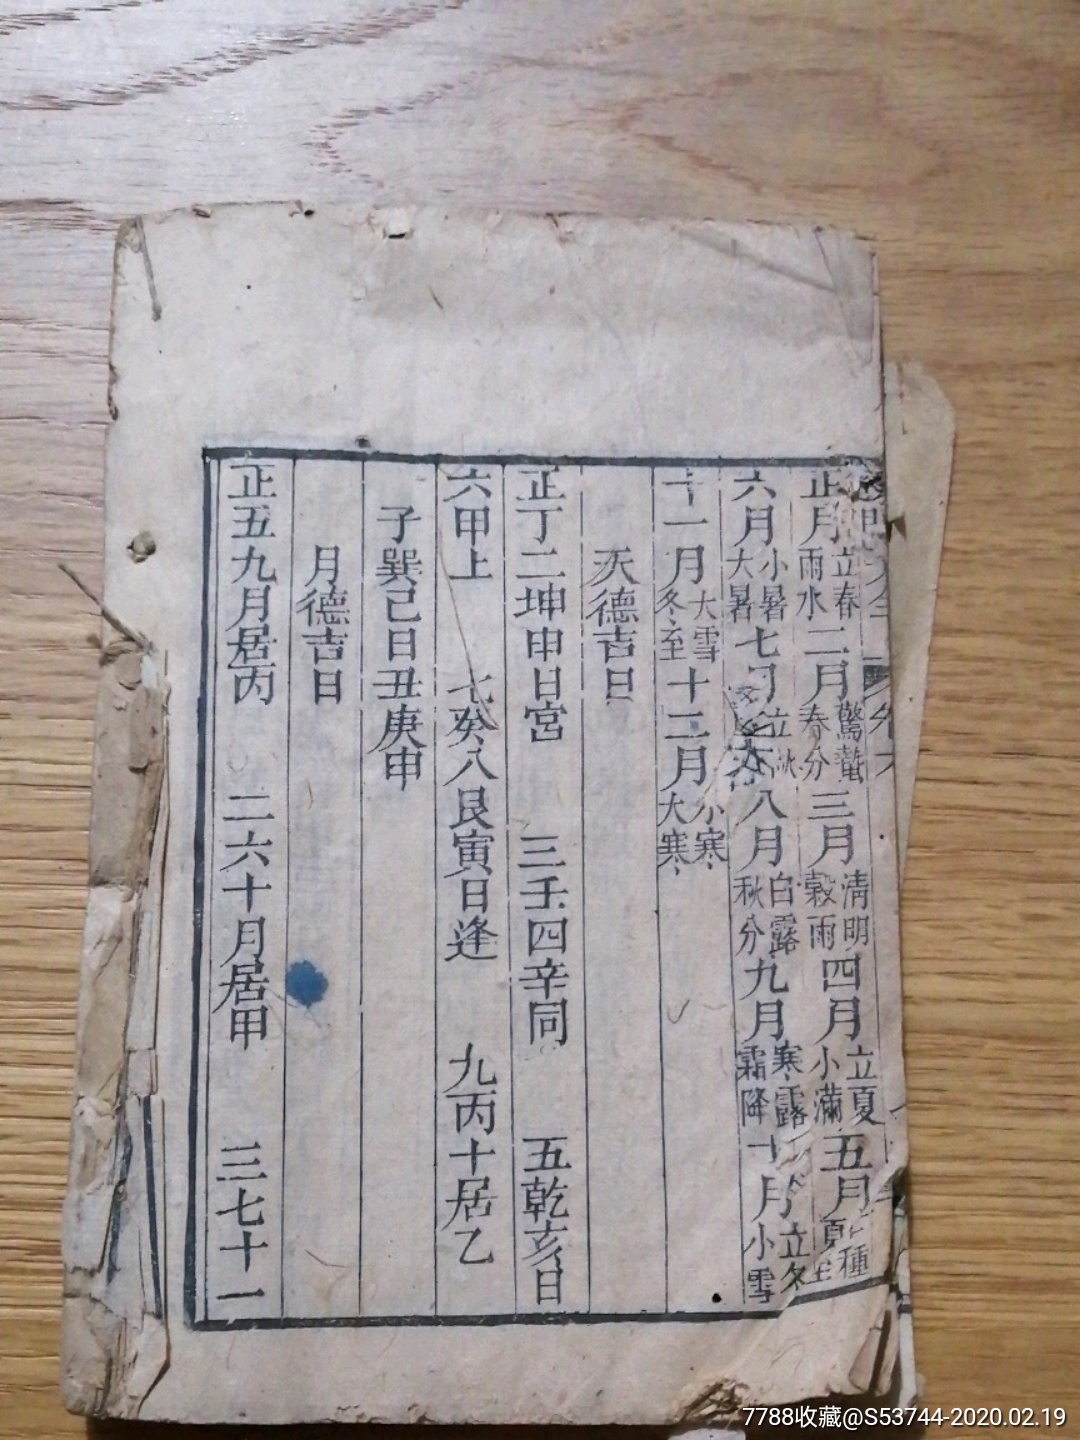 正月立春雨水二月驚蟄春分三月清明穀雨四月立夏小滿五月種夏至
六月小暑大暑七月立秋八月白露秋分九月寒露霜降十月立冬小雪
十一月大雪冬至十二月小寒大寒
天德吉日
正丁二坤申日宮 三壬四辛同 五乾亥日
六甲上 七癸八艮寅日逢 九丙十居乙
子巽己日丑庚申
月德吉日
正五九月居丙 二六十月居甲 三七十一
7788收藏@S53744-2020.02.19